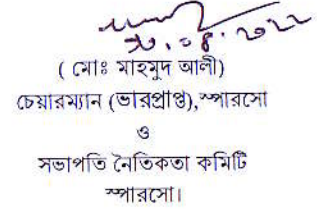 ৩০.০৪.২০২২
( মোঃ মাহমুদ আলী)
চেয়ারম্যান (ভারপ্রাপ্ত),স্পারসো
ও
সভাপতি নৈতিকতা কমিটি
স্পারসো।